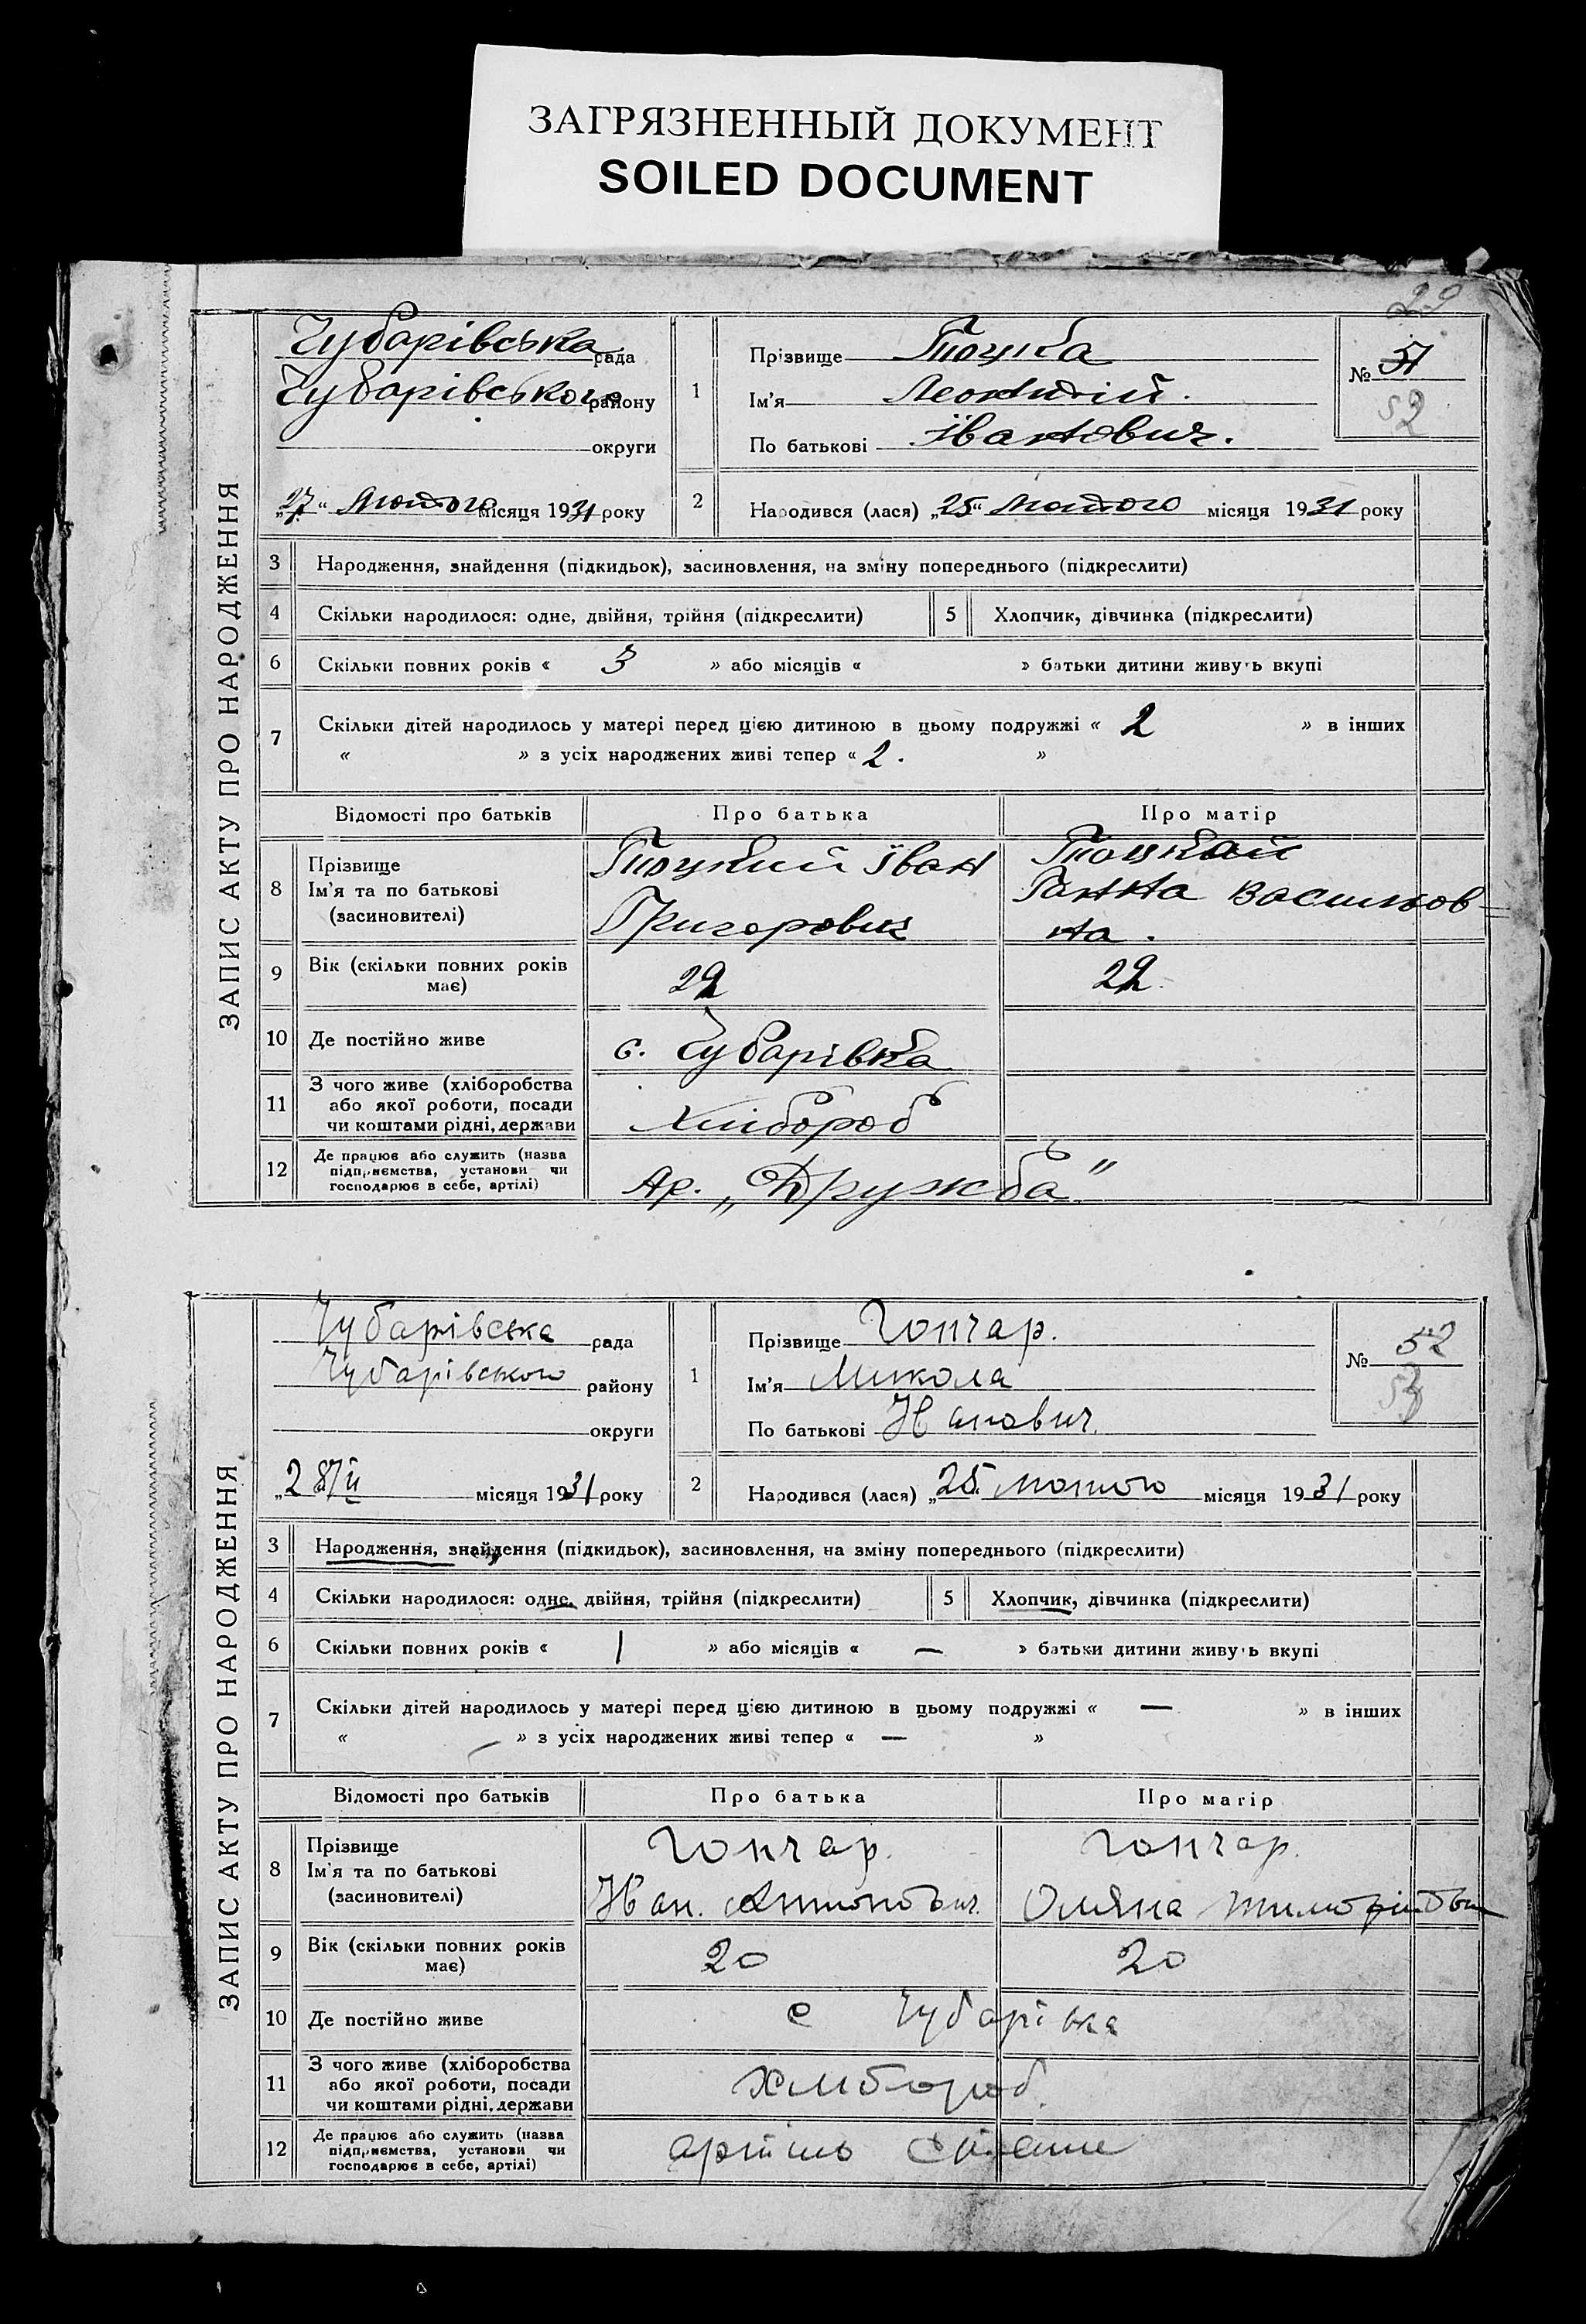 ЗАГРЯЗНЕННЫЙ ДОКУМЕНТ
SOILED DOCUMENT
29
ЗАПИС АКТУ ПРО НАРОДЖЕННЯ
Чубарівська рада
Чубарівського району
округи
„27“ Лютого місяця 1931 року
1
Прізвище
Ім'я Леонтій.
По батькові Івантович.
№ 51
52
2 Народився (лася) „25“ Лютого місяця 1931 року
3 Народження, знайдення (підкидьок), засиновлення, на зміну попереднього (підкреслити)
4 Скільки народилося: одне, двійня, трійня (підкреслити) 5 Хлопчик, дівчинка (підкреслити)
6 Скільки повних років « 3 » або місяців « » батьки дитини живуть вкупі
7 Скільки дітей народилось у матері перед цією дитиною в цьому подружжі « 2 » в інших
« » з усіх народжених живі тепер « 2. »
Відомості про батьків Про батька Про матір
8 Прізвище
Ім'я та по батькові
(засиновителі)
Тоцький Іван
Григорович
Тоцкай
Ганна Васильов-
на.
9 Вік (скільки повних років має) 22 22
10 Де постійно живе с. Чубарівка
11 З чого живе (хліборобства
або якої роботи, посади
чи коштами рідні, держави
Хлібороб
12 Де працює або служить (назва
підприємства, установи чи
господарює в себе, артілі)
Ар. „Дружба“
ЗАПИС АКТУ ПРО НАРОДЖЕННЯ
Чубарівська рада
Чубарівського району
округи
„28/ІІ місяця 1931 року
1
Прізвище Гончар.
Ім'я Микола
По батькові Ианович.
№ 52
53
2 Народився (лася) „25. Лютого місяця 1931 року
3 Народження, знайдення (підкидьок), засиновлення, на зміну попереднього (підкреслити)
4 Скільки народилося: одне, двійня, трійня (підкреслити) 5 Хлопчик, дівчинка (підкреслити)
6 Скільки повних років « 1 » або місяців « — » батьки дитини живуть вкупі
7 Скільки дітей народилось у матері перед цією дитиною в цьому подружжі « — » в інших
« — » з усіх народжених живі тепер « — »
Відомості про батьків Про батька Про матір
8 Прізвище
Ім'я та по батькові
(засиновителі)
Гончар.
Иан. Антонович.
Гончар.
Оляна
9 Вік (скільки повних років має) 20 20
10 Де постійно живе с Чубарівка
11 З чого живе (хліборобства
або якої роботи, посади
чи коштами рідні, держави
Хлібороб.
12 Де працює або служить (назва
підприємства, установи чи
господарює в себе, артілі)
артіль